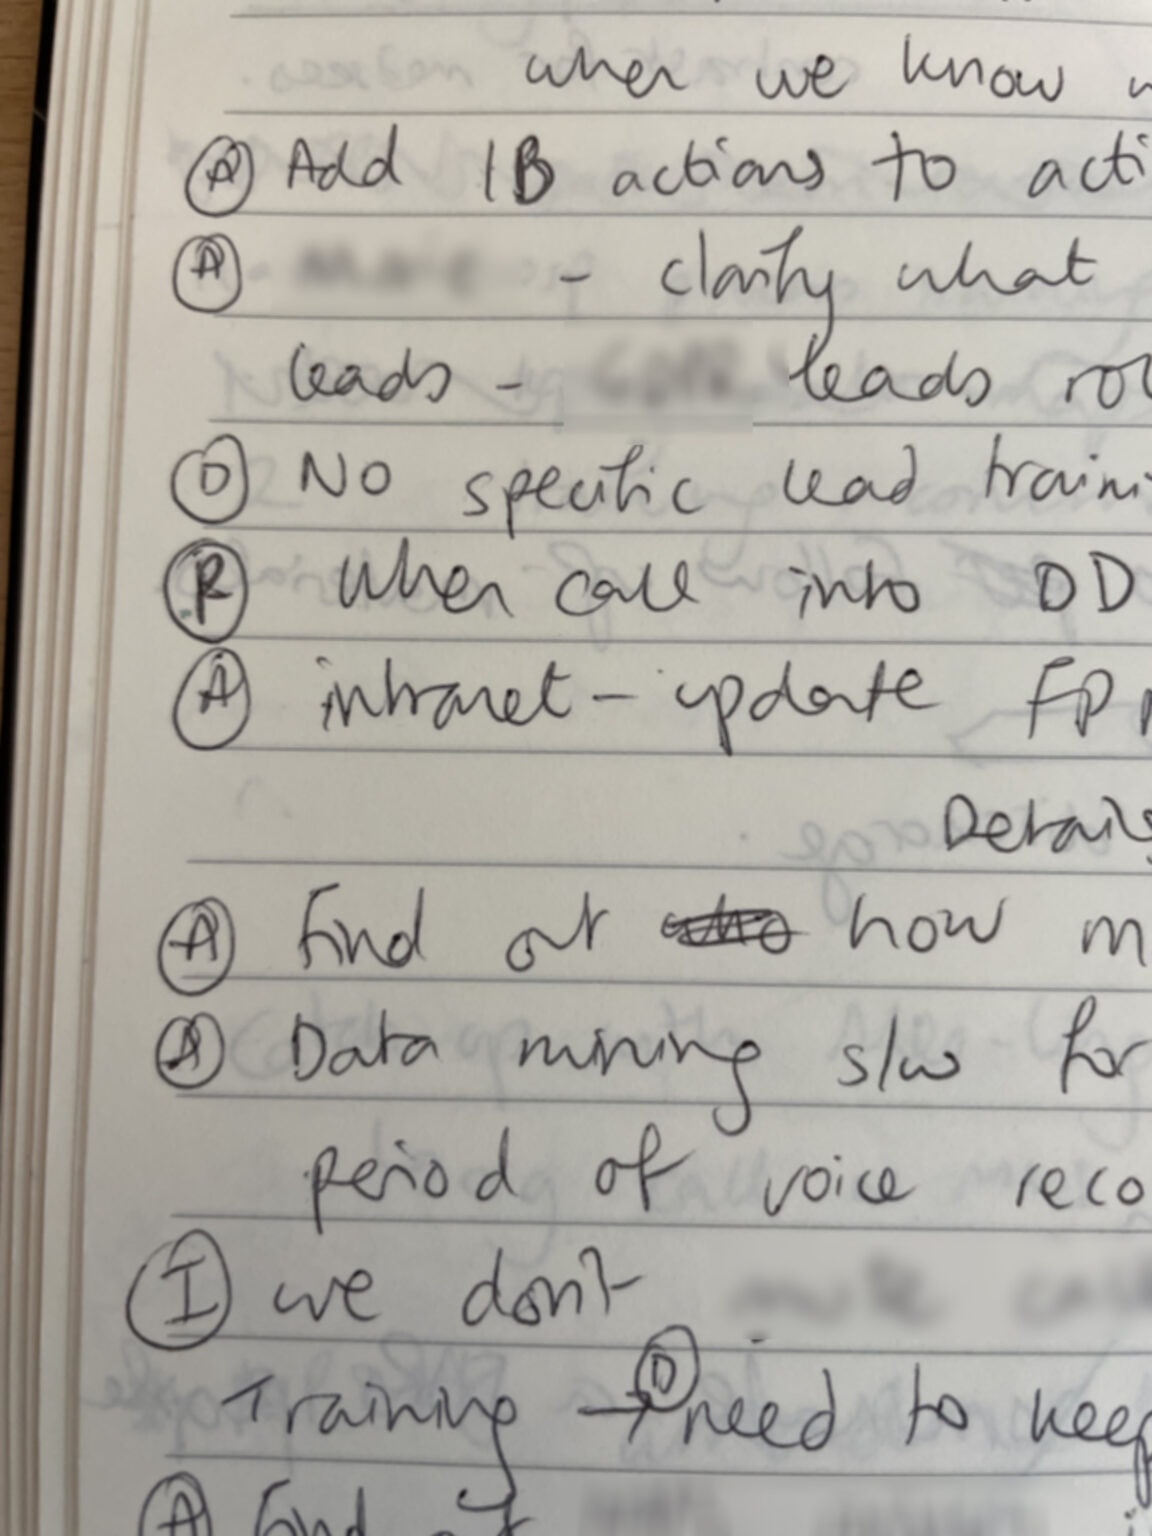 when we know
(A) Add IB actions to acti
(A) - clarify what
leads - leads rol
(D) No specific lead traini
(R) when call into DD
(A) intranet - update FP
Details
(A) find out how m
(A) Data mining s/w for
period of voice reco
(I) we don't
Training → (D) need to keep
(A) find out